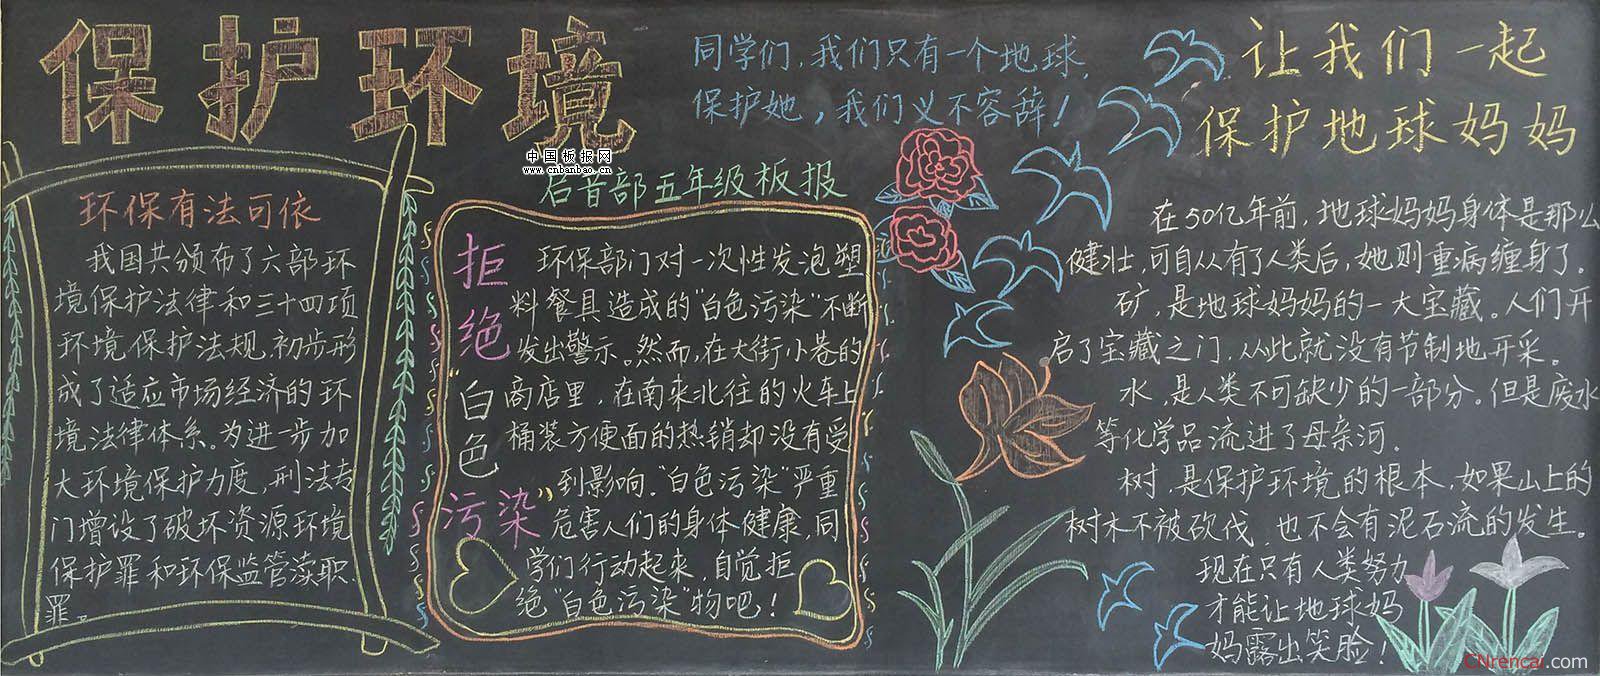 保护环境
同学们,我们只有一个地球,
保护她,我们义不容辞!
中国板报网
www.cnbanbao.cn
启音部五年级板报
环保有法可依
我国共颁布了六部环
境保护法律和三十四项
环境保护法规,初步形
成了适应市场经济的环
境法律体系。为进一步加
大环境保护力度,刑法专
门增设了破坏资源环境
保护罪和环保监管渎职
罪。
拒绝"白色污染"
环保部门对一次性发泡塑
料餐具造成的"白色污染"不断
发出警示。然而,在大街小巷的
商店里,在南来北往的火车上
桶装方便面的热销却没有受
到影响。"白色污染"严重
危害人们的身体健康,同
学们行动起来,自觉拒
绝"白色污染"物吧!
让我们一起
保护地球妈妈
在50亿年前,地球妈妈身体是那么
健壮,可自从有了人类后,她则重病缠身了。
矿,是地球妈妈的一大宝藏。人们开
启了宝藏之门,从此就没有节制地开采。
水,是人类不可缺少的一部分。但是废水
等化学品流进了母亲河。
树,是保护环境的根本,如果山上的
树木不被砍伐,也不会有泥石流的发生。
现在只有人类努力
才能让地球妈
妈露出笑脸!
CNrencai.com